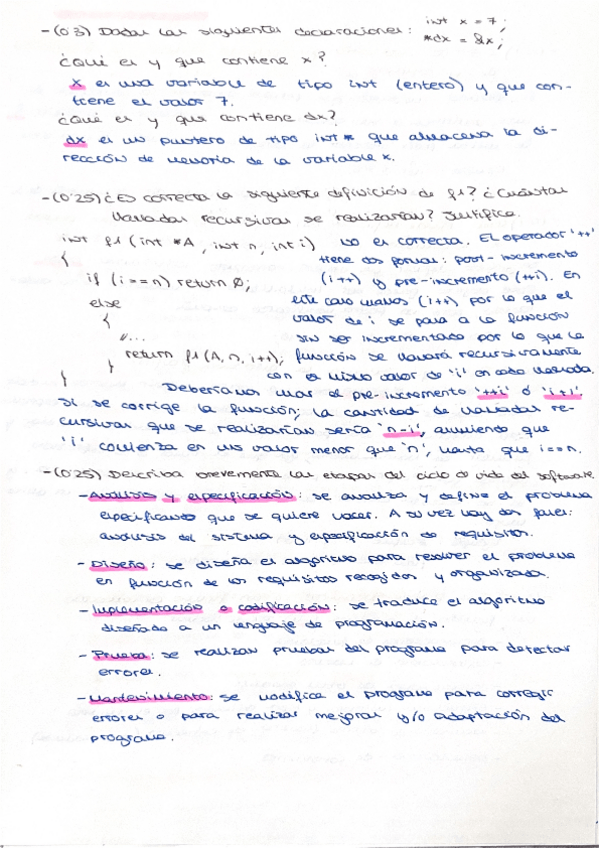 -(0'3) Dadas las siguientes declaraciones: int x = 7;
*dx = &x;
¿Qué es y que contiene x?
x es una variable de tipo int (entero) y que con-
tiene el valor 7.
¿Qué es y que contiene dx?
dx es un puntero de tipo int* que almacena la di-
rección de memoria de la variable x.
-(0'25) ¿Es correcta la siguiente definición de f1? ¿Cuántas
llamadas recursivas se realizarían? Justifica.
int f1 (int *A, int n, int i) No es correcta. El operador '++'
{ tiene dos formas: post-incremento
if (i == n) return 0; (i++) y pre-incremento (++i). En
else este caso usamos (i++) por lo que el
{ valor de i se pasa a la función
//... sin ser incrementado por lo que la
return f1(A, n, i++); función se llamará recursivamente
} con el mismo valor de 'i' en cada llamada.
} Deberíamos usar el pre-incremento '++i' ó 'i+1'.
Si se corrige la función, la cantidad de llamadas re-
cursivas que se realizarían sería 'n-i', asumiendo que
'i' comienza en un valor menor que 'n', hasta que i==n.
-(0'25) Describa brevemente las etapas del ciclo de vida del software.
- Análisis y especificación: se analiza y define el problema
especificando que se quiere hacer. A su vez hay dos fases:
análisis del sistema y especificación de requisitos.
- Diseño: se diseña el algoritmo para resolver el problema
en función de los requisitos recogidos y organizada.
- Implementación o codificación: se traduce el algoritmo
diseñado a un lenguaje de programación.
- Prueba: se realizan pruebas del programa para detectar
errores.
- Mantenimiento: se modifica el programa para corregir
errores o para realizar mejoras y/o adaptación del
programa.